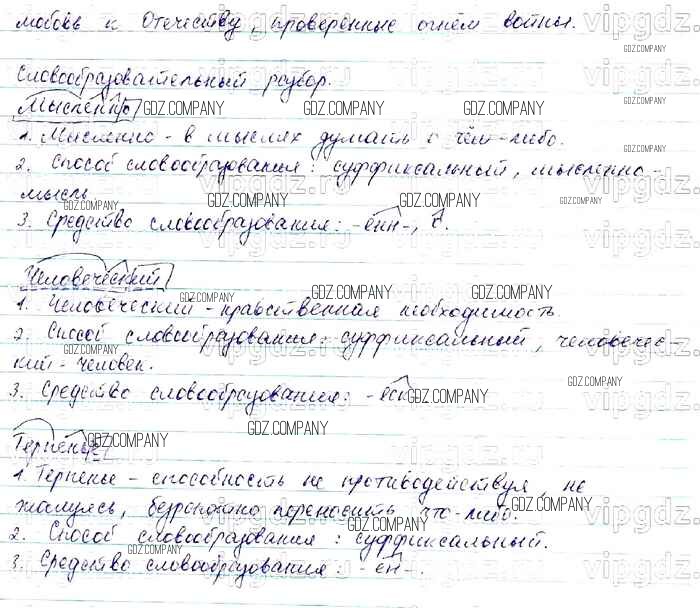 любовь к Отечеству, проверенные огнём войны.
Словообразовательный разбор.
Мысленно
1. Мысленно - в мыслях думать о чём-либо.
2. Способ словообразования: суффиксальный, мысленно -
мысль
3. Средство словообразования: -енн-,
Человеческий
1. Человеческий - нравственная необходимость.
2. Способ словообразования: суффиксальный, человечес-
кий - человек.
3. Средство словообразования: -еск
Терпенье
1. Терпенье - способность не противодействуя, не
жалуясь, безропотно переносить что-либо.
2. Способ словообразования: суффиксальный.
3. Средство словообразования: -ен-.
GDZ.COMPANY
vipgdz.ru